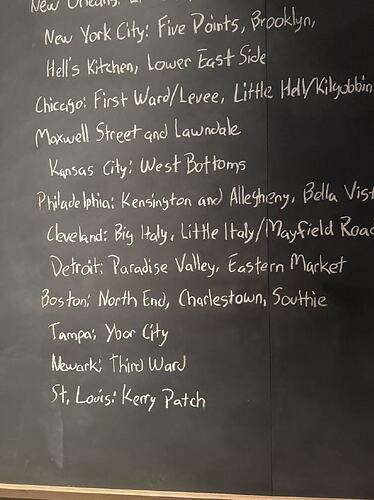 New Orleans:
New York City: Five Points, Brooklyn,
Hell's Kitchen, Lower East Side
Chicago: First Ward/Levee, Little Hell/Kilgubbin
Maxwell Street and Lawndale
Kansas City: West Bottoms
Philadelphia: Kensington and Allegheny, Bella Vist
Cleveland: Big Italy, Little Italy/Mayfield Road
Detroit: Paradise Valley, Eastern Market
Boston: North End, Charlestown, Southie
Tampa: Ybor City
Newark: Third Ward
St. Louis: Kerry Patch